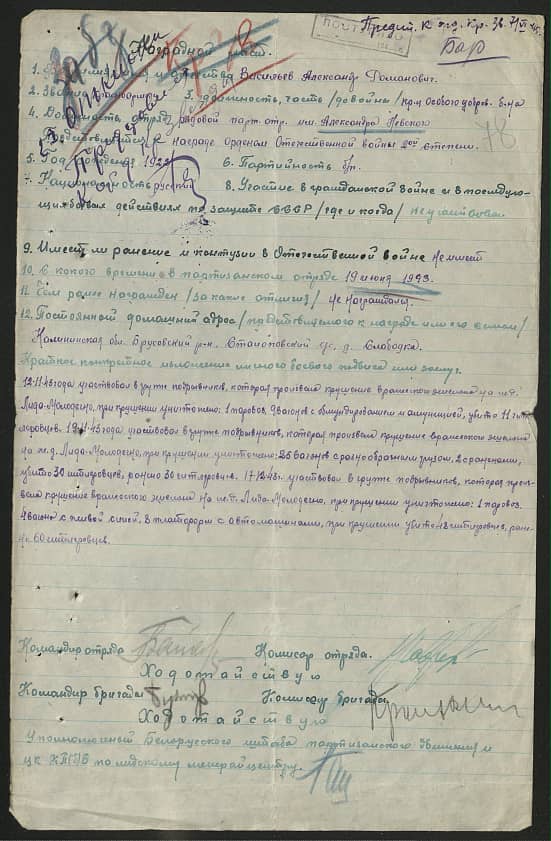 Наградной лист.
1. Васильев Александр Романович.
2. Звание 3. должность, часть /до войны/
4. Должность, отряд рядовой парт. отр. им. Александра Невского
Представляется к награде орденом Отечественной войны 2ой степени.
5. Год рождения 6. Партийность б/п.
7. Национальность русский 8. Участие в гражданской войне и в последую-
щих боевых действиях по защите СССР /где и когда/ не участвовал
9. Имеет ли ранение и контузии в Отечественной войне не имеет
10. С какого времени в партизанском отряде 19 июня 1943.
11. Чем ранее награжден /за какие отличия/ не награждался.
12. Постоянный домашний адрес /представляемого к награде или его семьи/
Калининская обл. Брусовский р-н. с/с. д. Слободка.
Краткое конкретное изложение личного боевого подвига или заслуг.
12.11.43 года участвовал в группе подрывников, которая произвела крушение вражеского эшелона на ж.д.
Лида-Молодечно, при крушении уничтожено: 1 паровоз, 9 вагонов с обмундированием и амуницией, убито 11 гит-
леровцев. 19.11.43 года участвовал в группе подрывников, которая произвела крушение вражеского эшелона
на ж.д. Лида-Молодечно, при крушении уничтожено: 25 вагонов с разнообразным грузом, 2 с ранеными,
убито 30 гитлеровцев, ранено 30 гитлеровцев. 17.12.43г. участвовал в группе подрывников, которая произ-
вела крушение вражеского эшелона на ж.д. Лида-Молодечно, при крушении уничтожено: 1 паровоз.
4 вагона с живой силой, 8 платформ с автомашинами, при крушении убито 48 гитлеровцев, ране-
но 60 гитлеровцев.
Командир отряда Комиссар отряда.
Ходотайствую
Командир бригады Комиссар бригады
Ходотайствую
Уполномоченный Белорусского штаба партизанского движения и
ЦК КП/б/Б по Лидскому межрайцентру.